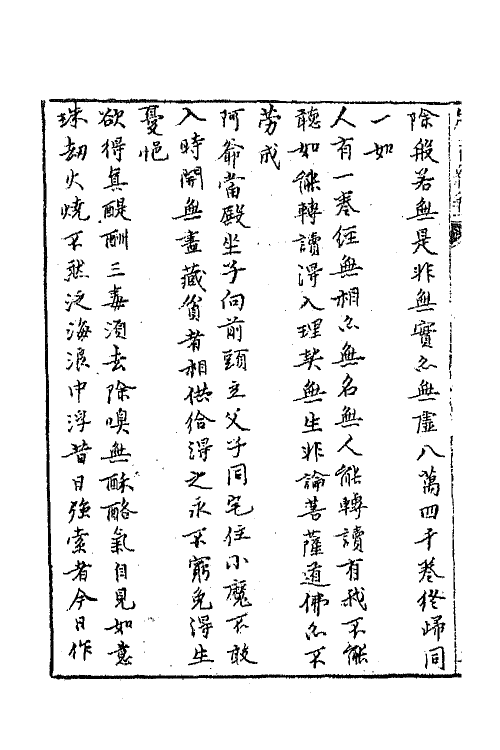 除般若無是非無實亦無虛八萬四千卷終歸同
一如
人有一卷經無相亦無名無人能轉讀有我不能
聽如能轉讀淂入理契無生非論菩薩道佛亦不
勞成
阿爺當殿坐子向前頭立父子同宅住小魔不敢
入時開無盡藏貧者相供給淂之永不窮免淂生
憂悒
欲得真醍醐三毒須去除嗅無酥酪氣自見如意
珠劫火燒不然泛海浪中浮昔日強索者今日作